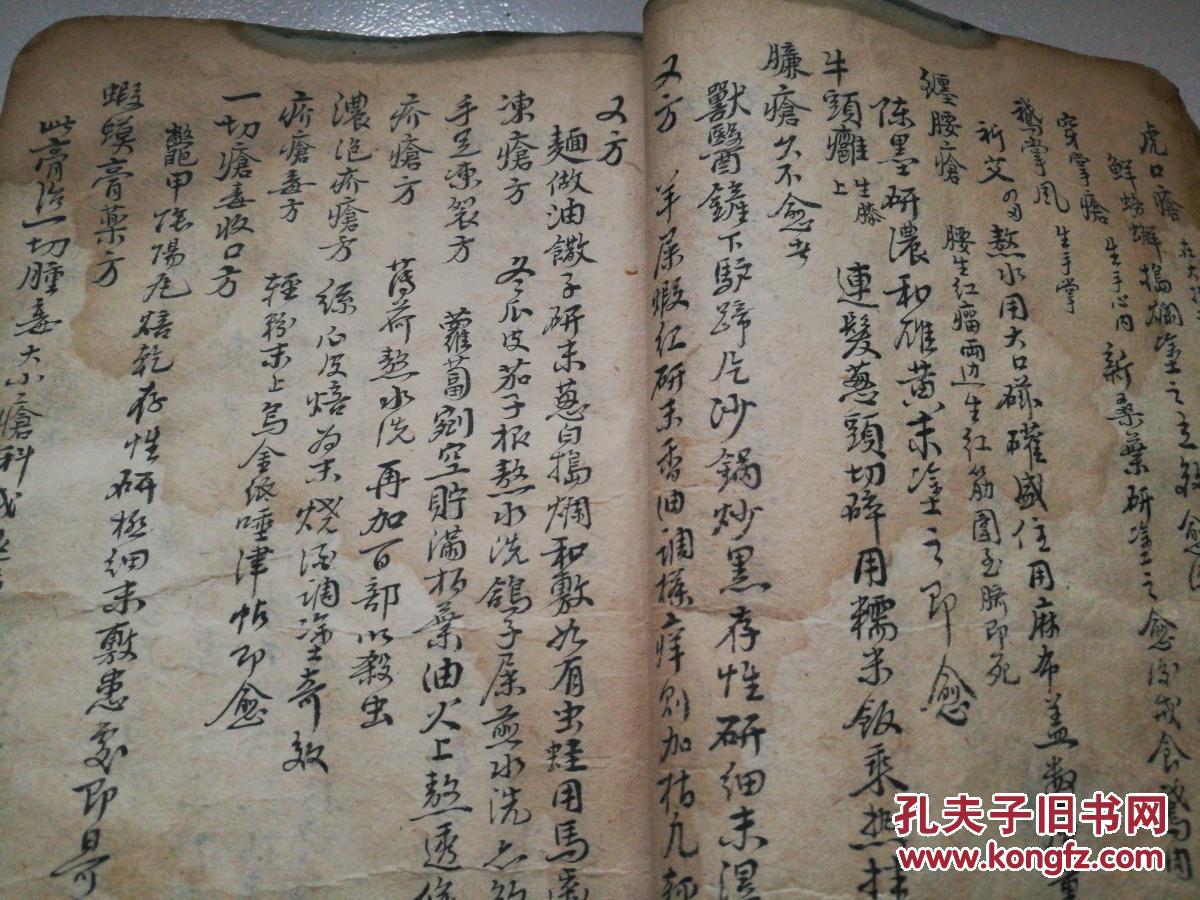 虎口瘡
鮮螃蠏搗爛塗之立效
穿掌瘡 生手心內 新桑葉研塗之愈後戒食
鵝掌風 生手掌
祈艾 熬水用大口磁礶盛住用麻布盖数
纏腰瘡 腰生紅瘤兩边生紅筋圍至臍即死
陈墨研濃和雄黄末塗之即愈
牛頭癰 生膝上 連髮葱頭切碎用糯米飯乘热
臁瘡久不愈者
獸醫鏟下馿蹄片沙鍋炒黑存性研細末
又方 羊屎蝦紅研末香油調搽痒則加枯九
又方
麵做油饊子研末葱白搗爛和敷如有虫蛀用馬
凍瘡方 冬瓜皮茄子根熬水洗鴿子屎煎水洗
手足凍裂方 蘿蔔剜空貯滿柏葉油火上熬透
疥瘡方 薄荷熬水洗再加百部以殺虫
濃泡疥瘡方 絲瓜皮焙为末燒酒調塗奇效
疥瘡毒方 輕粉末上烏金纸唾津帖即愈
一切瘡毒收口方
鱉甲陰陽瓦焙乾存性研極細末敷患處即
蝦蟆膏藥方
此膏治一切腫毒大小瘡科
孔夫子旧书网
www.kongfz.com